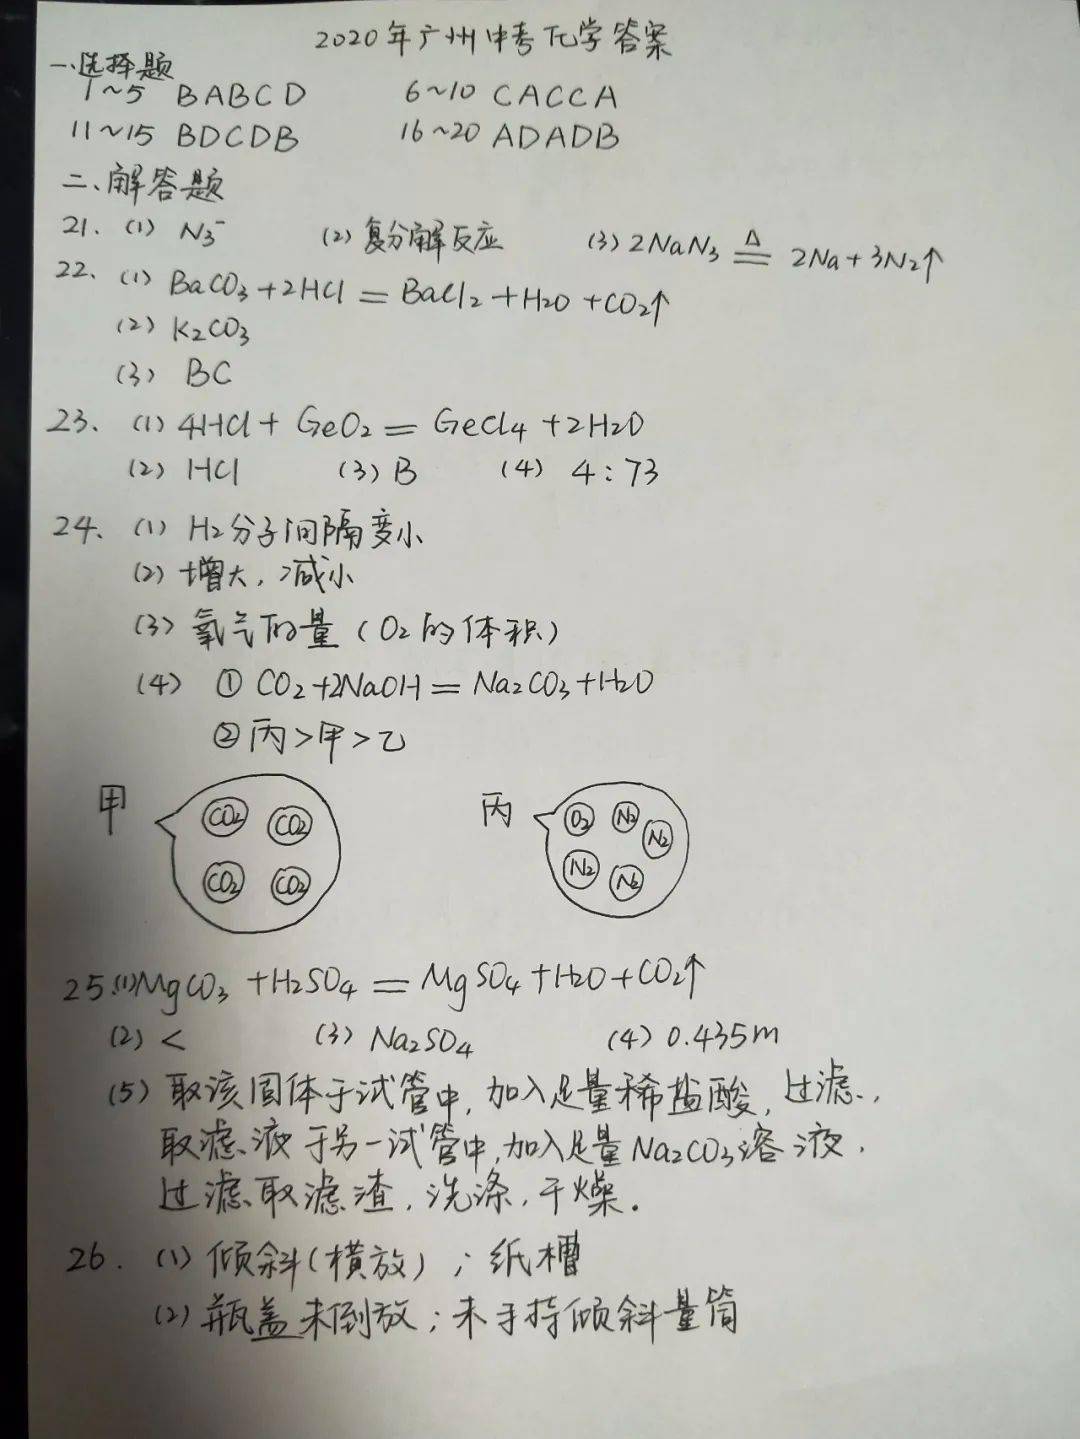 2020年广州中考化学答案
一、选择题
1~5 BABCD 6~10 CACCA
11~15 BDCDB 16~20 ADADB
二、解答题
21. (1) N₃⁻ (2) 复分解反应 (3) 2NaN₃ ≜ 2Na+3N₂↑
22. (1) BaCO₃+2HCl=BaCl₂+H₂O+CO₂↑
(2) K₂CO₃
(3) BC
23. (1) 4HCl+GeO₂=GeCl₄+2H₂O
(2) HCl (3) B (4) 4:73
24. (1) H₂分子间隔变小
(2) 增大,减小
(3) 氧气的量(O₂的体积)
(4) ① CO₂+2NaOH=Na₂CO₃+H₂O
② 丙>甲>乙
甲 CO₂ CO₂ 丙 O₂ N₂ N₂
CO₂ CO₂ N₂ N₂
25.(1)MgCO₃+H₂SO₄=MgSO₄+H₂O+CO₂↑
(2) < (3) Na₂SO₄ (4) 0.435m
(5) 取该固体于试管中,加入足量稀盐酸,过滤,
取滤液于另一试管中,加入足量Na₂CO₃溶液,
过滤取滤渣,洗涤,干燥.
26. (1) 倾斜(横放);纸槽
(2) 瓶盖未倒放;未手持倾斜量筒